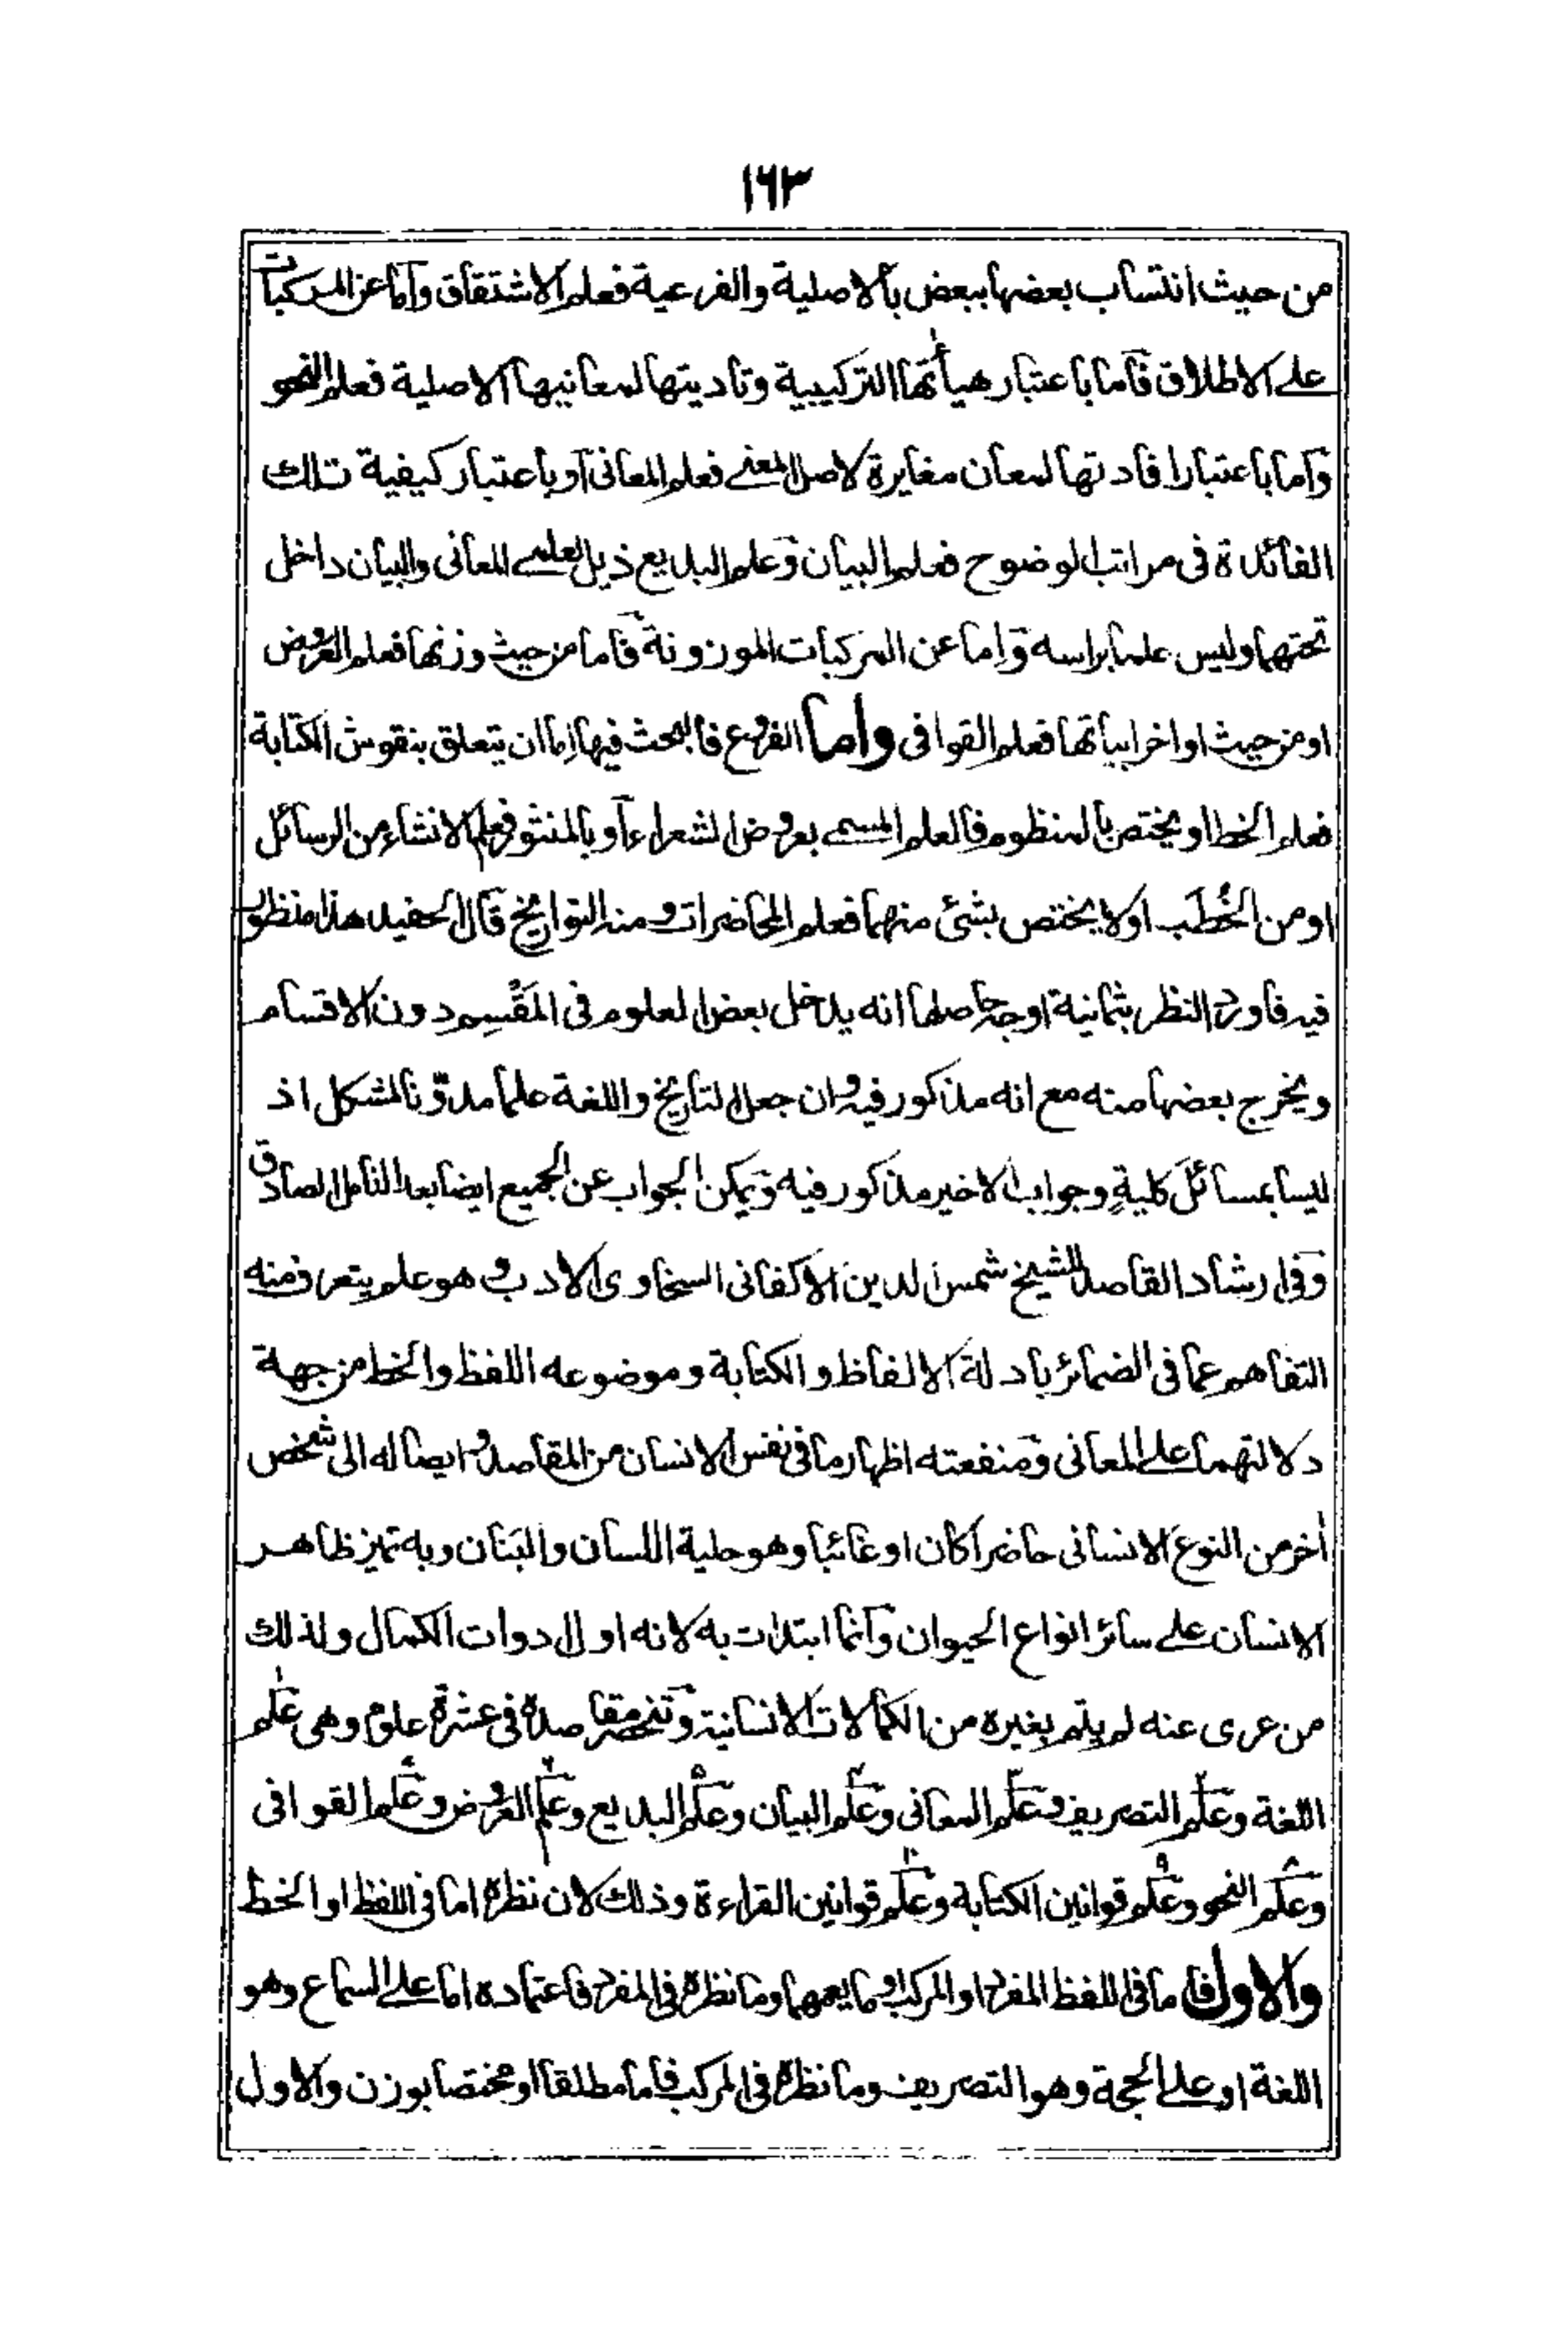 ١٦٣
من حيث انتساب بعضها ببعض بالاصلية والفرعية فعلم الاشتقاق واما عن المركبات
على الاطلاق فاما باعتبار هيأتها التركيبية وتاديتها لمعانيها الاصلية فعلم النحو
واما باعتبار افادتها لمعان مغايرة لاصل المعنى فعلم المعانى او باعتبار كيفية تلك
الفائدة فى مراتب الوضوح فعلم البيان وعلم البديع ذيل لعلمى المعانى والبيان داخل
تحتهما وليس علما براسه واما عن المركبات الموزونة فاما من حيث وزنها فعلم العروض
او من حيث اواخر ابياتها فعلم القوافى واما الفروع فالبحث فيها اما ان يتعلق بنقوش الكتابة
فعلم الخط او يختص بالمنظوم فالعلم المسمى بعروض الشعراء او بالمنثور فعلم الانشاء من الرسائل
او من الخُطَب اولا يختص بشئ منهما فعلم المحاضرات ومنه التواريخ قال الحفيد هذا منظور
فيه فاورد النظر بثمانية اوجه حاصلها انه يدخل بعض العلوم فى المَقْسِم دون الاقسام
ويخرج بعضها منه مع انه مذكور فيه وان جعل التاريخ واللغة علما مدوّنا لمشكل اذ
ليسا بمسائل كليةٍ وجواب الاخير مذكور فيه ويمكن الجواب عن الجميع ايضا بعد التامل الصادق
وفى ارشاد القاصد للشيخ شمس الدين الاكفانى السخاوى الادب وهو علم يتعرف منه
التفاهم عما فى الضمائر بادلة الالفاظ والكتابة وموضوعه اللفظ والخط من جهة
دلالتهما على المعانى ومنفعته اظهار ما فى نفس الانسان من المقاصد وايصاله الى شخص
اٰخر من النوع الانسانى حاضرا كان او غائبا وهو حلية اللسان والبَنان وبه تميز ظاهر
الانسان على سائر انواع الحيوان وانما ابتدات به لانه اول ادوات الكمال ولذلك
من عرى عنه لم يتم بغيره من الكمالات الانسانية وتنحصر مقاصده فى عشرة علوم وهى علم
اللغة وعلم التصريف وعلم المعانى وعلم البيان وعلم البديع وعلم العروض وعلم القوافى
وعلم النحو وعلم قوانين الكتابة وعلم قوانين القراءة وذلك لان نظره اما فى اللفظ او الخط
والاول فاما فى اللفظ المفرد او المركب او ما يعمهما وما نظره فى المفرد فاعتماده اما على السماع وهو
اللغة او على الحجة وهو التصريف وما نظره فى المركب فاما مطلقا او مختصا بوزن والاول